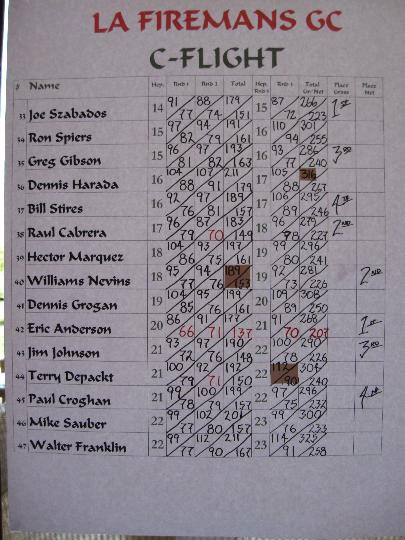 LA FIREMANS GC
C-FLIGHT
# Name Hcp. Rnd 1 Rnd 2 Total Hcp. Rnd 3 Rnd 3 Total Grs/Net Place Gross Place Net
33 Joe Szabados 14 91 77 88 74 179 151 15 87 72 266 223 1st
34 Ron Spiers 15 97 82 94 79 191 161 16 110 94 301 255
35 Greg Gibson 15 96 81 97 82 193 163 16 93 77 286 240 3rd
36 Dennis Harada 16 104 88 107 91 211 179 17 105 88 316 267
37 Bill Stires 16 92 76 97 81 189 157 17 106 89 295 246 4th
38 Raul Cabrera 17 96 79 87 70 183 149 17 96 78 279 227 2nd
39 Hector Marquez 18 104 86 93 75 197 161 19 99 80 296 241
40 Williams Nevins 18 95 77 94 76 189 153 19 92 73 281 226 2nd
41 Dennis Grogan 19 104 85 95 76 199 161 20 109 89 308 250
42 Eric Anderson 20 86 66 91 71 177 137 21 91 70 268 207 1st
43 Jim Johnson 21 93 72 97 76 190 148 22 100 78 290 226 3rd
44 Terry Depackt 21 100 79 92 71 192 150 22 112 90 304 240
45 Paul Croghan 21 99 78 100 79 199 157 22 97 75 296 232 4th
46 Mike Sauber 22 99 77 102 80 201 157 23 99 76 300 233
47 Walter Franklin 22 99 77 112 90 211 167 23 114 91 325 258